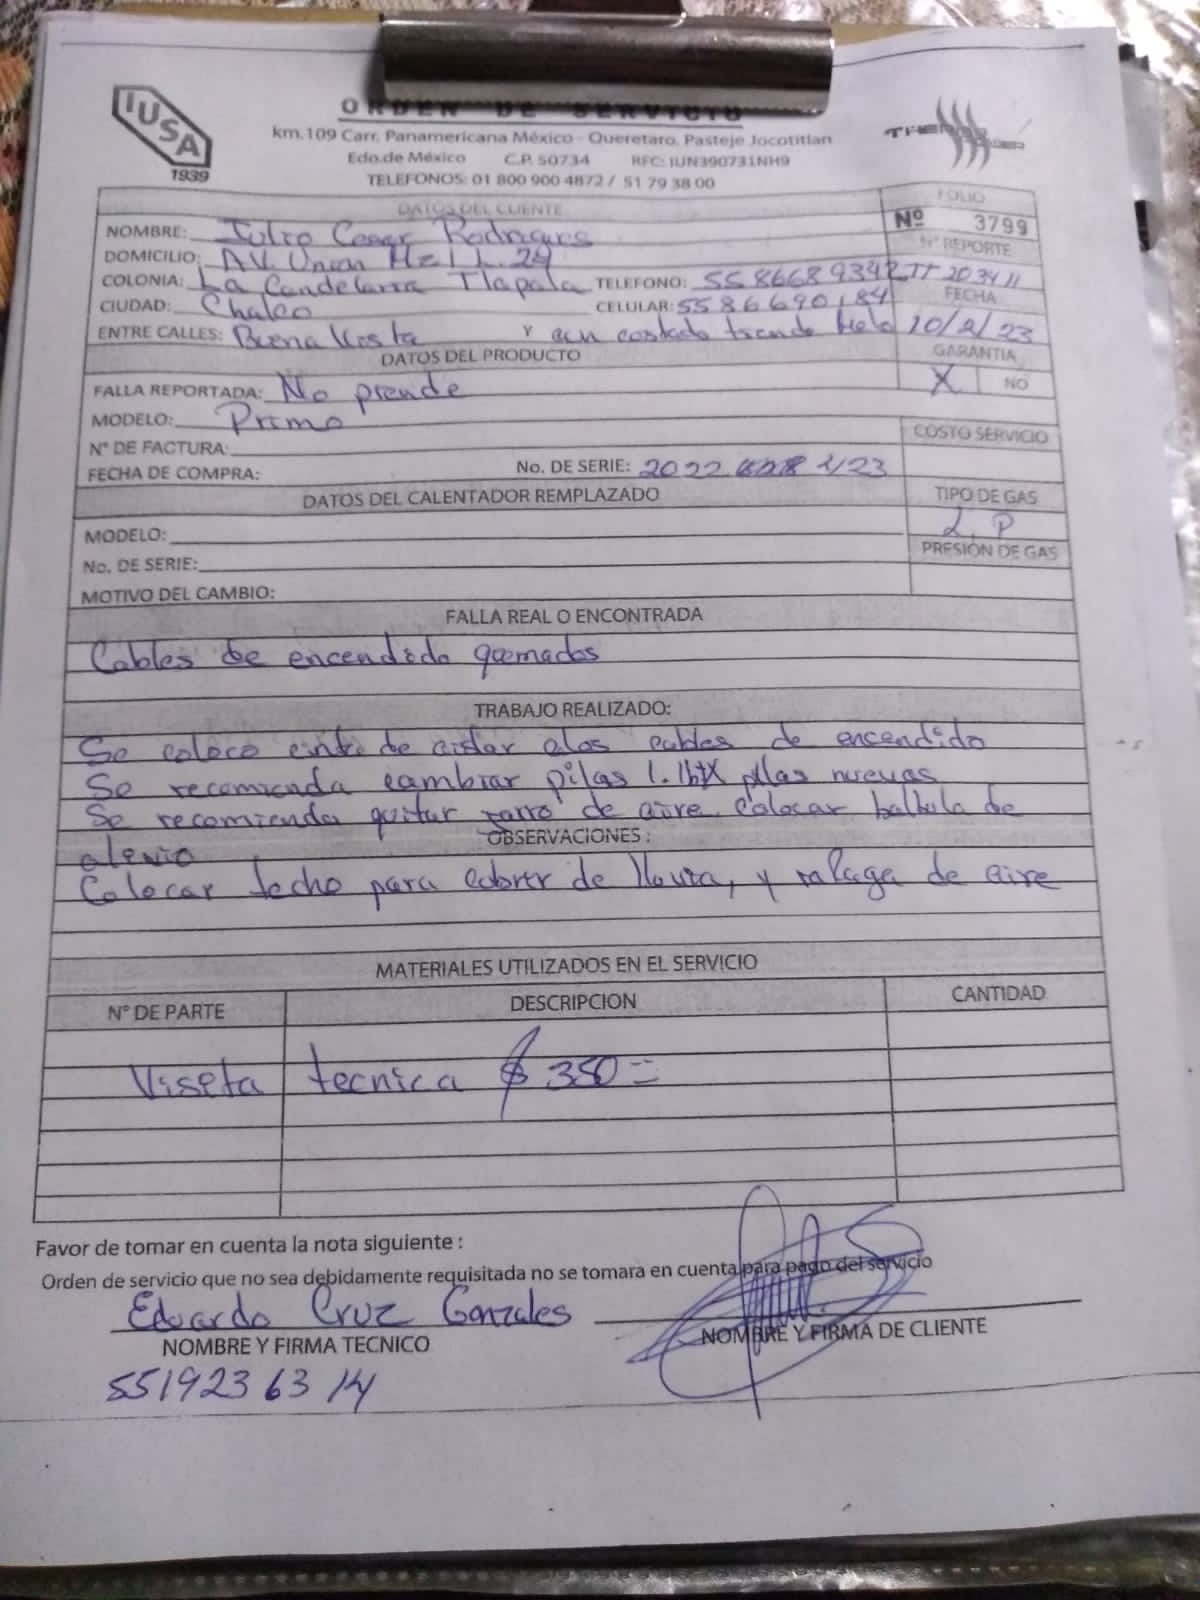 IUSA
1939
ORDEN DE SERVICIO
km.109 Carr. Panamericana México - Queretaro. Pasteje Jocotitlan
Edo.de México C.P. 50734 RFC: IUN390731NH9
TELEFONOS: 01 800 900 4872 / 51 79 38 00
DATOS DEL CLIENTE
FOLIO
Nº 3799
NOMBRE: Julio Cesar Rodrigues
N° REPORTE
DOMICILIO: AV. Union Mz11 L.29
COLONIA: La Candelarra Tlapala TELEFONO: 55 86689342 TT 203411
CIUDAD: Chalco CELULAR: 55 86690184
FECHA
ENTRE CALLES: Buena Vista Y aun costado tienda 10/2/23
DATOS DEL PRODUCTO
GARANTIA
FALLA REPORTADA: No prende
X NO
MODELO: Primo
N° DE FACTURA:
COSTO SERVICIO
FECHA DE COMPRA: No. DE SERIE: 2022
DATOS DEL CALENTADOR REMPLAZADO
TIPO DE GAS
L.P
MODELO:
PRESION DE GAS
No. DE SERIE:
MOTIVO DEL CAMBIO:
FALLA REAL O ENCONTRADA
Cables de encendido quemados
TRABAJO REALIZADO:
Se coloco cinta de aislar alos cables de encendido
Se recomienda cambiar pilas nuevas
Se recomienda quitar jarro de aire colocar balbula de
OBSERVACIONES :
alevio
Colocar techo para cubrir de lluvia, y rafaga de aire
MATERIALES UTILIZADOS EN EL SERVICIO
N° DE PARTE DESCRIPCION CANTIDAD
Viseta tecnica $ 350=
Favor de tomar en cuenta la nota siguiente :
Orden de servicio que no sea debidamente requisitada no se tomara en cuenta para pago del servicio
Eduardo Cruz Gonzales
NOMBRE Y FIRMA TECNICO
NOMBRE Y FIRMA DE CLIENTE
5519236314